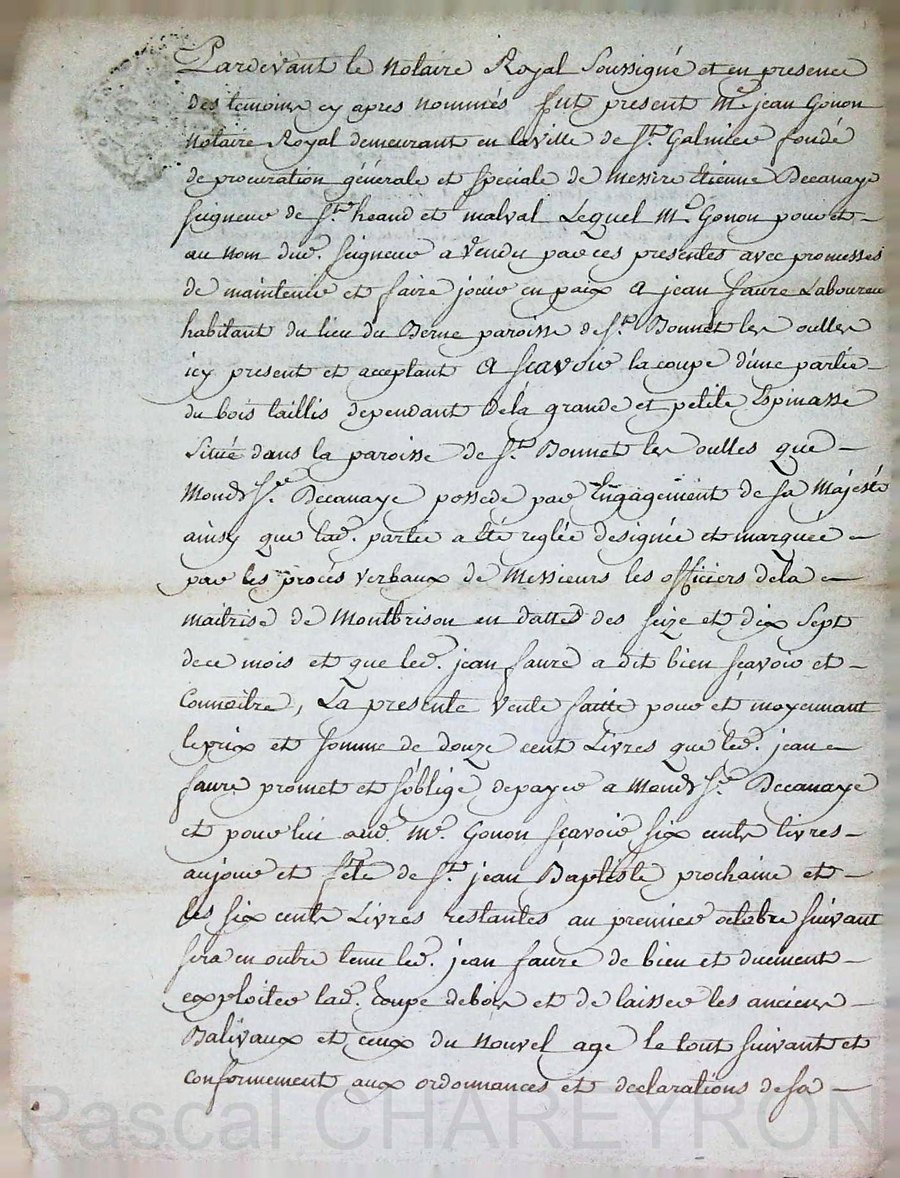 Pardevant le Notaire Royal Soussigné et en presence
des temoins cy apres nommés fut present Me. jean Gonon
Notaire Royal demeurant en la ville de St. Galmier fondé
de procuration générale et speciale de messire Etienne Decanaye
seigneur de St. heand et malval Lequel Me. Gonon pour et
au nom dud. seigneur a vendu par ces presentes avec promesses
de maintenir et faire joüir en paix a jean faure Laboureur
habitant du lieu du Berne paroisse de St. Bonnet les oulles
icy present et acceptant a sçavoir la coupe d'une partie
du bois taillis dependant de la grande et petite Espinasse
situé dans la paroisse de St. Bonnet les oulles que
Mond. Sr. Decanaye possede par Engagement de sa Majésté
ainsy que lad. partie a été reglée designée et marquée
par les procés verbaux de Messieurs les officiers de la
maitrise de Montbrison en dattes des seize et dix sept
de ce mois et que led. jean faure a dit bien sçavoir et
Connoitre, La presente vente faitte pour et moyennant
le prix et somme de douze cent Livres que led. jean
faure promet et s'oblige de payer a Mond. Sr. Decanaye
et pour lui aud. Me. Gonon sçavoir six cents livres
au jour et fête de St. jean Baptiste prochaine et
les six cents Livres restantes au premier octobre suivant
sera en outre tenu led. jean faure de bien et duement
exploiter lad. Coupe de bois et de laisser les anciens
Balivaux et ceux du Nouvel age le tout suivant et
conformement aux ordonnances et declarations de sa
Pascal CHAREYRON